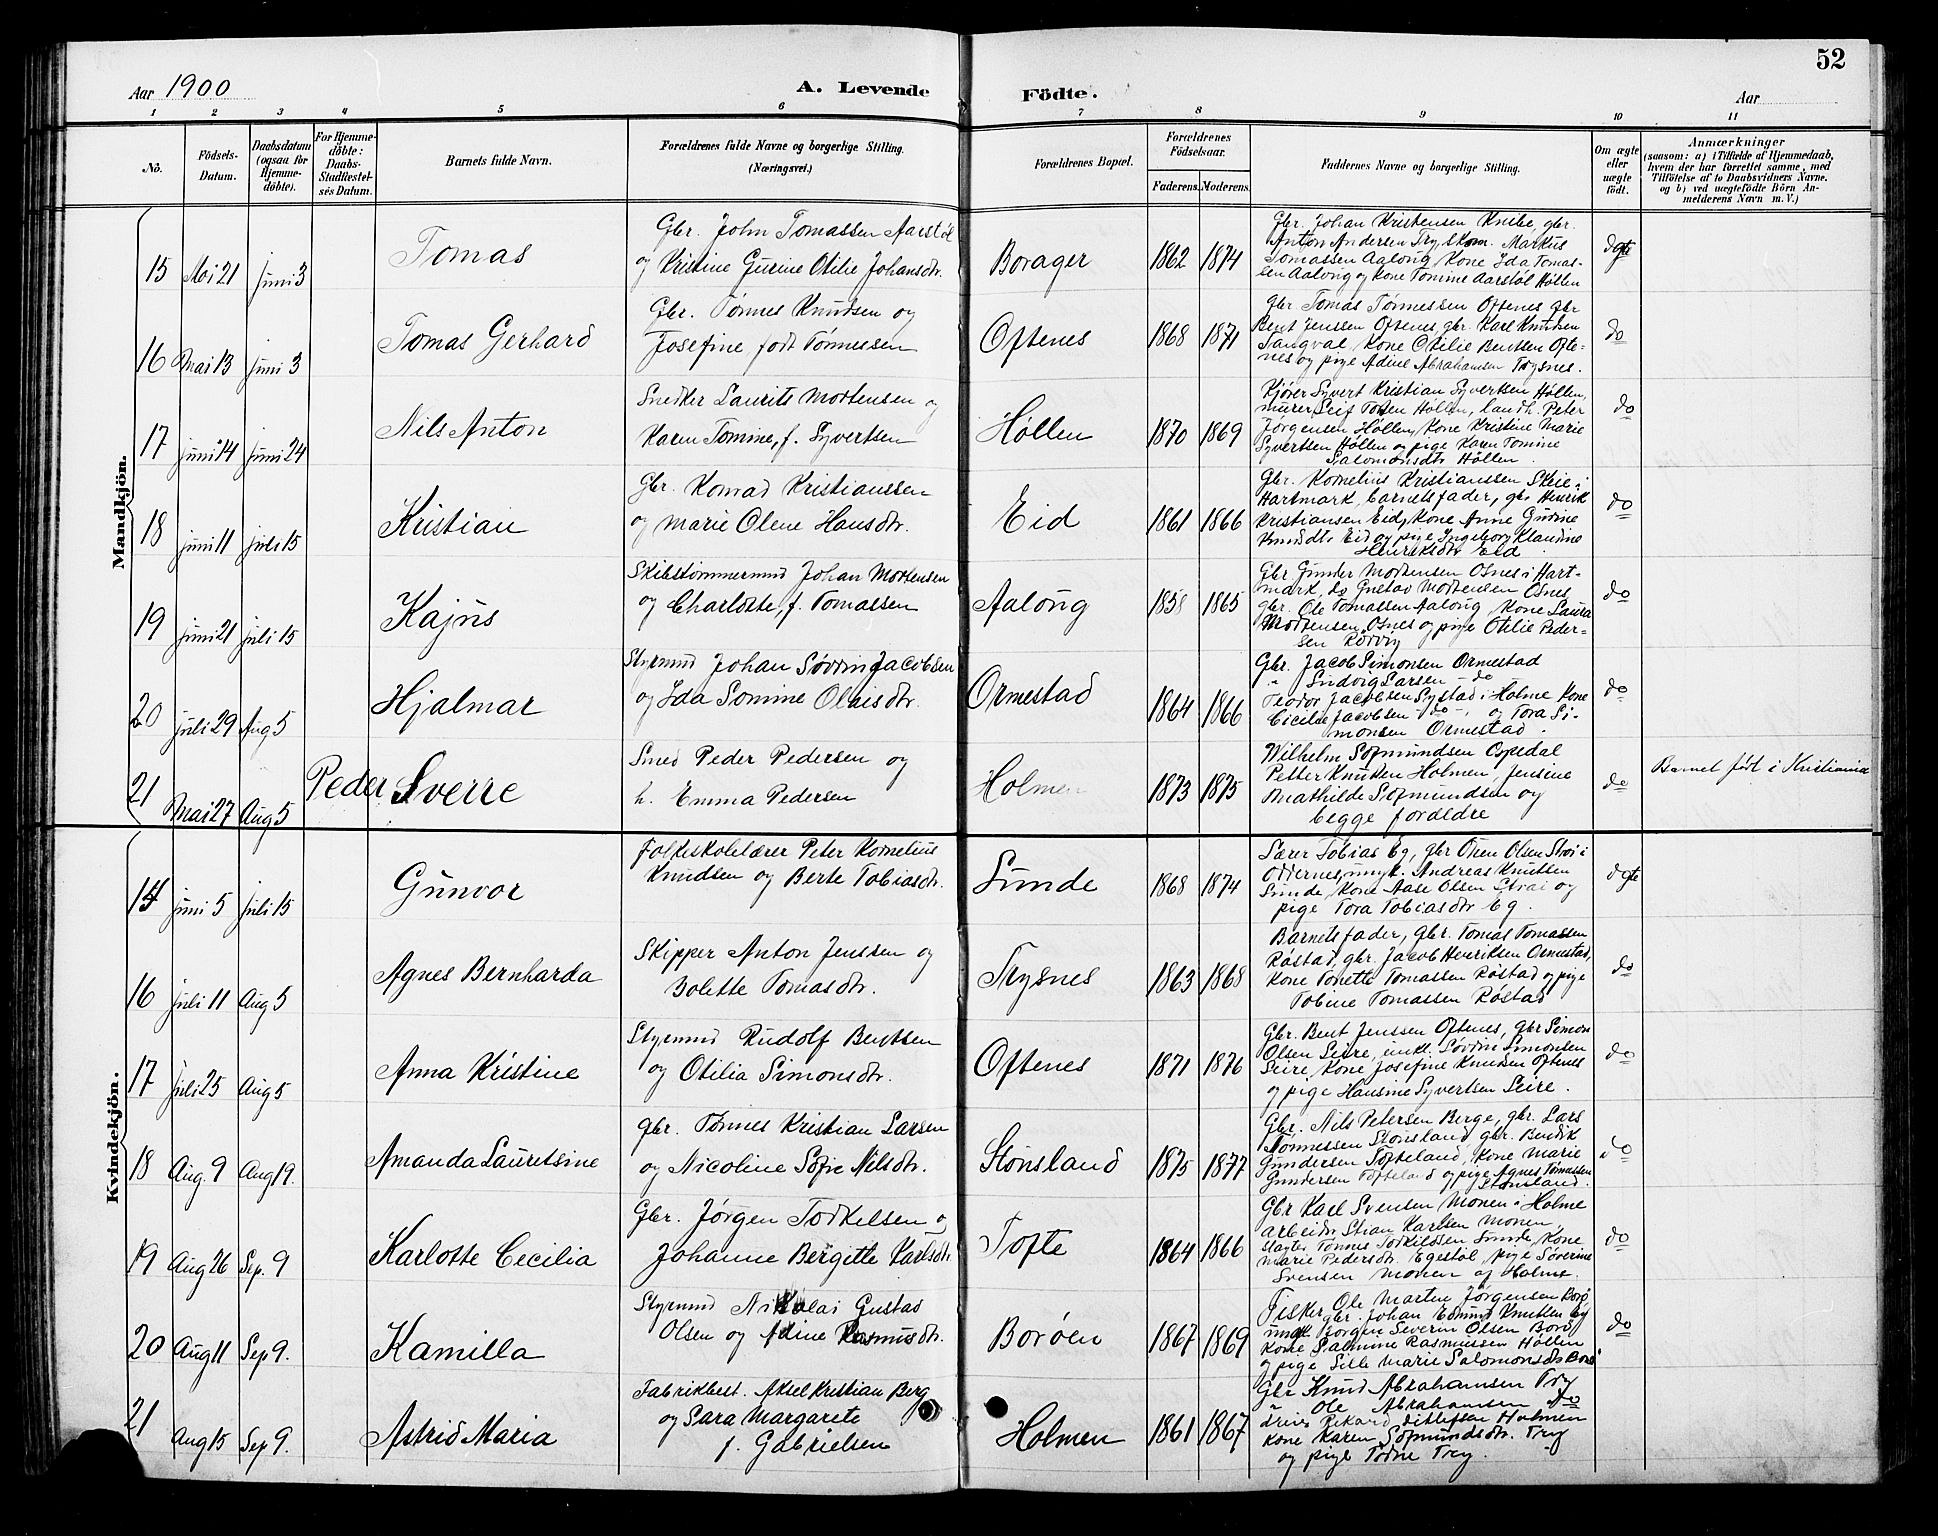 52
Aar 1900
A. Levende Födte.
Aar
1 2 3 4 5 6 7 8 9 10 11
No.
Födsels-Datum.
Daabsdatum (ogsaa for Hjemme-döbte).
For Hjemme-döbte: Daabs-Stadfæstel-ses Datum.
Barnets fulde Navn.
Forældrenes fulde Navne og borgerlige Stilling. (Næringsvei.)
Forældrenes Bopæl.
Forældrenes Födselsaar.
Faderens. Moderens.
Faddernes Navne og borgerlige Stilling.
Om ægte eller uægte födt.
Anmærkninger
(saasom: a) i Tilfælde af Hjemmedaab, hvem der har forrettet samme, med Tilföielse af to Daabsvidners Navne, og b) ved uægtefödte Börn An-melderens Navn m. V.)
Mandkjön.
15 Mai 21 Juni 3 Tomas
Gbr. John Tomassen Aarstöl
og Kristine Gurine Otilie Johansdtr.
Borager 1862 1874
Gbr. Johan Kristensen Knibe, gbr.
Anton Andersen Try, Skom. Markus
Tomassen Aalong, Kone Ida Tomas-
sen Aalong og Kone Tomine Aarstöl Höllen
16 Mai 13 Juni 3 Tomas Gerhard
Gbr. Tønnes Knudsen og
Josefine født Tønnessen
Oftenes 1868 1871
Gbr Tomas Tønnessen Oftenes gbr
Bent Jenssen Oftenes, gbr. Karl Knudsen
Tangval, Kone Otilie Bentsen Ofte-
nes og pige Adine Abrahamsen Trysnes.
do
17 Juni 14 Juni 24 Nils Anton
Snedker Laurits Mortensen og
Karen Tomine, f. Syvertsen
Høllen 1870 1869
Kjører Syvert Kristian Syvertsen Høllen,
murer Leif Torsen Høllen, landh. Peter
Jørgensen Høllen, Kone Kristine Marie
Syvertsen Høllen og pige Karen Tomine
Salomonsdtr Höllen.
do
18 Juni 11 Juli 15 Kristian
Gbr. Konrad Kristianssen
og Marie Olene Hansdtr.
Eid 1861 1866
Gbr. Kornelius Kristianssen Skeie i
Hartmark, barnets fader, gbr Henrik
Kristiansen Eid, Kone Anne Gurine
Knudsdtr Eid og pige Ingeborg Klaudine
Henriksdtr Eid.
do
19 Juni 21 Juli 15 Kajus
Skibstømmermd Johan Mortensen
og Charlotte, f. Tomassen
Aalong 1858 1865
Gbr Gunder Mortensen Osnes i Hart-
mark, do Gustav Mortensen Osnes
gbr. Ole Tomassen Aalong, Kone Laura
Mortensen Osnes og pige Otilie Peder-
sen Rørvig
do
20 Juli 29 Aug 5 Hjalmar
Styrmd Johan Sørvin Jacobsen
og Ida Tomine Olaisdtr.
Ormestad 1864 1866
Gbr. Jacob Simonsen Ormestad
" Ludvig Larsen - do
Teodor Jacobsen Systad i Holme Kone
Cecilie Jacobsen - do -, og Tora Si-
monsen Ormestad.
do
21 Mai 27 Aug 5 Peder Sverre
Smed Peder Pedersen og
h. Emma Pedersen
Holmen 1873 1875
Wilhelm Sofmundsen Opedal
Petter Knutsen Holmen, Jensine
Mathilde Sofmundsen og
begge foreldre
do
Barnet født i Kristiania
Kvindekjön.
15 Juni 5 Juli 15 Gunvor
Folkeskolelærer Peter Kornelius
Knudsen og Berte Tobiasdtr.
Sunde 1868 1874
Lærer Tobias Eg, gbr Oren Olsen Strai i
Oddernes, ungk. Andreas Knutsen
Sunde, Kone Aase Olsen Strai og
pige Tora Tobiasdtr Eg.
16 Juli 11 Aug 5 Agnes Bernharda
Skipper Anton Jenssen og
Bolette Tomasdtr.
Trysnes 1863 1868
Barnets fader, gbr. Tomas Tomassen
Røstad, gbr. Jacob Henriksen Ormestad,
Kone Tonette Tomassen Røstad og pige
Tobine Tomassen Røstad
do
17 Juli 25 Aug 5 Anna Kristine
Styrmd Rudolf Bentsen
og Otilia Simonsdtr.
Oftenes 1871 1876
Gbr. Bent Jenssen Oftenes, gbr Simon
Olsen Seire, unk. Sørvin Simonsen
Seire, Kone Josefine Knudsen Oftenes
og pige Hansine Syvertsen Seire.
do
18 Aug. 9 Aug 19. Amanda Lauretsine
Gbr. Tønnes Kristian Larsen
og Nicoline Sofie Nilsdtr.
Stønsland 1875 1877
Gbr. Nils Petersen Berge, gbr. Lars
Tønnessen Stønsland, gbr. Bendik
Gundersen Tofteland, Kone Marie
Gundersen Tofteland og pige Agnes Tomassen
Stønsland.
do
19 Aug 26 Sep. 9 Karlotte Cecilia
Gbr. Jørgen Torkelsen og
Johanne Bergitte Karlsdtr.
Tofte 1864 1866
Gbr Karl Svensen Monen i Holme
arbeidr Stian Karlsen Monen,
slagter Tønnes Torkildsen Sunde, Kone
Marie Pedersdtr. Egestøl, pige Søverine
Svensen Monen af Holme.
do
20 Aug 11 Sep 9. Kamilla
Styrmd Nikolai Gustav
Olsen og Adine Rasmusdtr.
Borøen 1867 1869
Fisker Ole Martin Jørgensen Borø
gbr. Johan Edmund Knutsen Eg
ungk. Jørgen Severin Olsen Borø
Kone Salmine Rasmussen Høllen
og pige Sille Marie Salomonsdtr Borø
do
21 Aug 15 Sep 9. Astrid Maria
Fabrikbest. Aksel Kristian Berg
og Sara Margarete
f. Gabrielsen
Holmen 1861 1867
Gbr Knud Abrahamsen Try
" Ole Abrahamsen do
Rikard Ditlefsen Holmen
Kone Karen Sofmundsdtr. Try
og pige Torne Try.